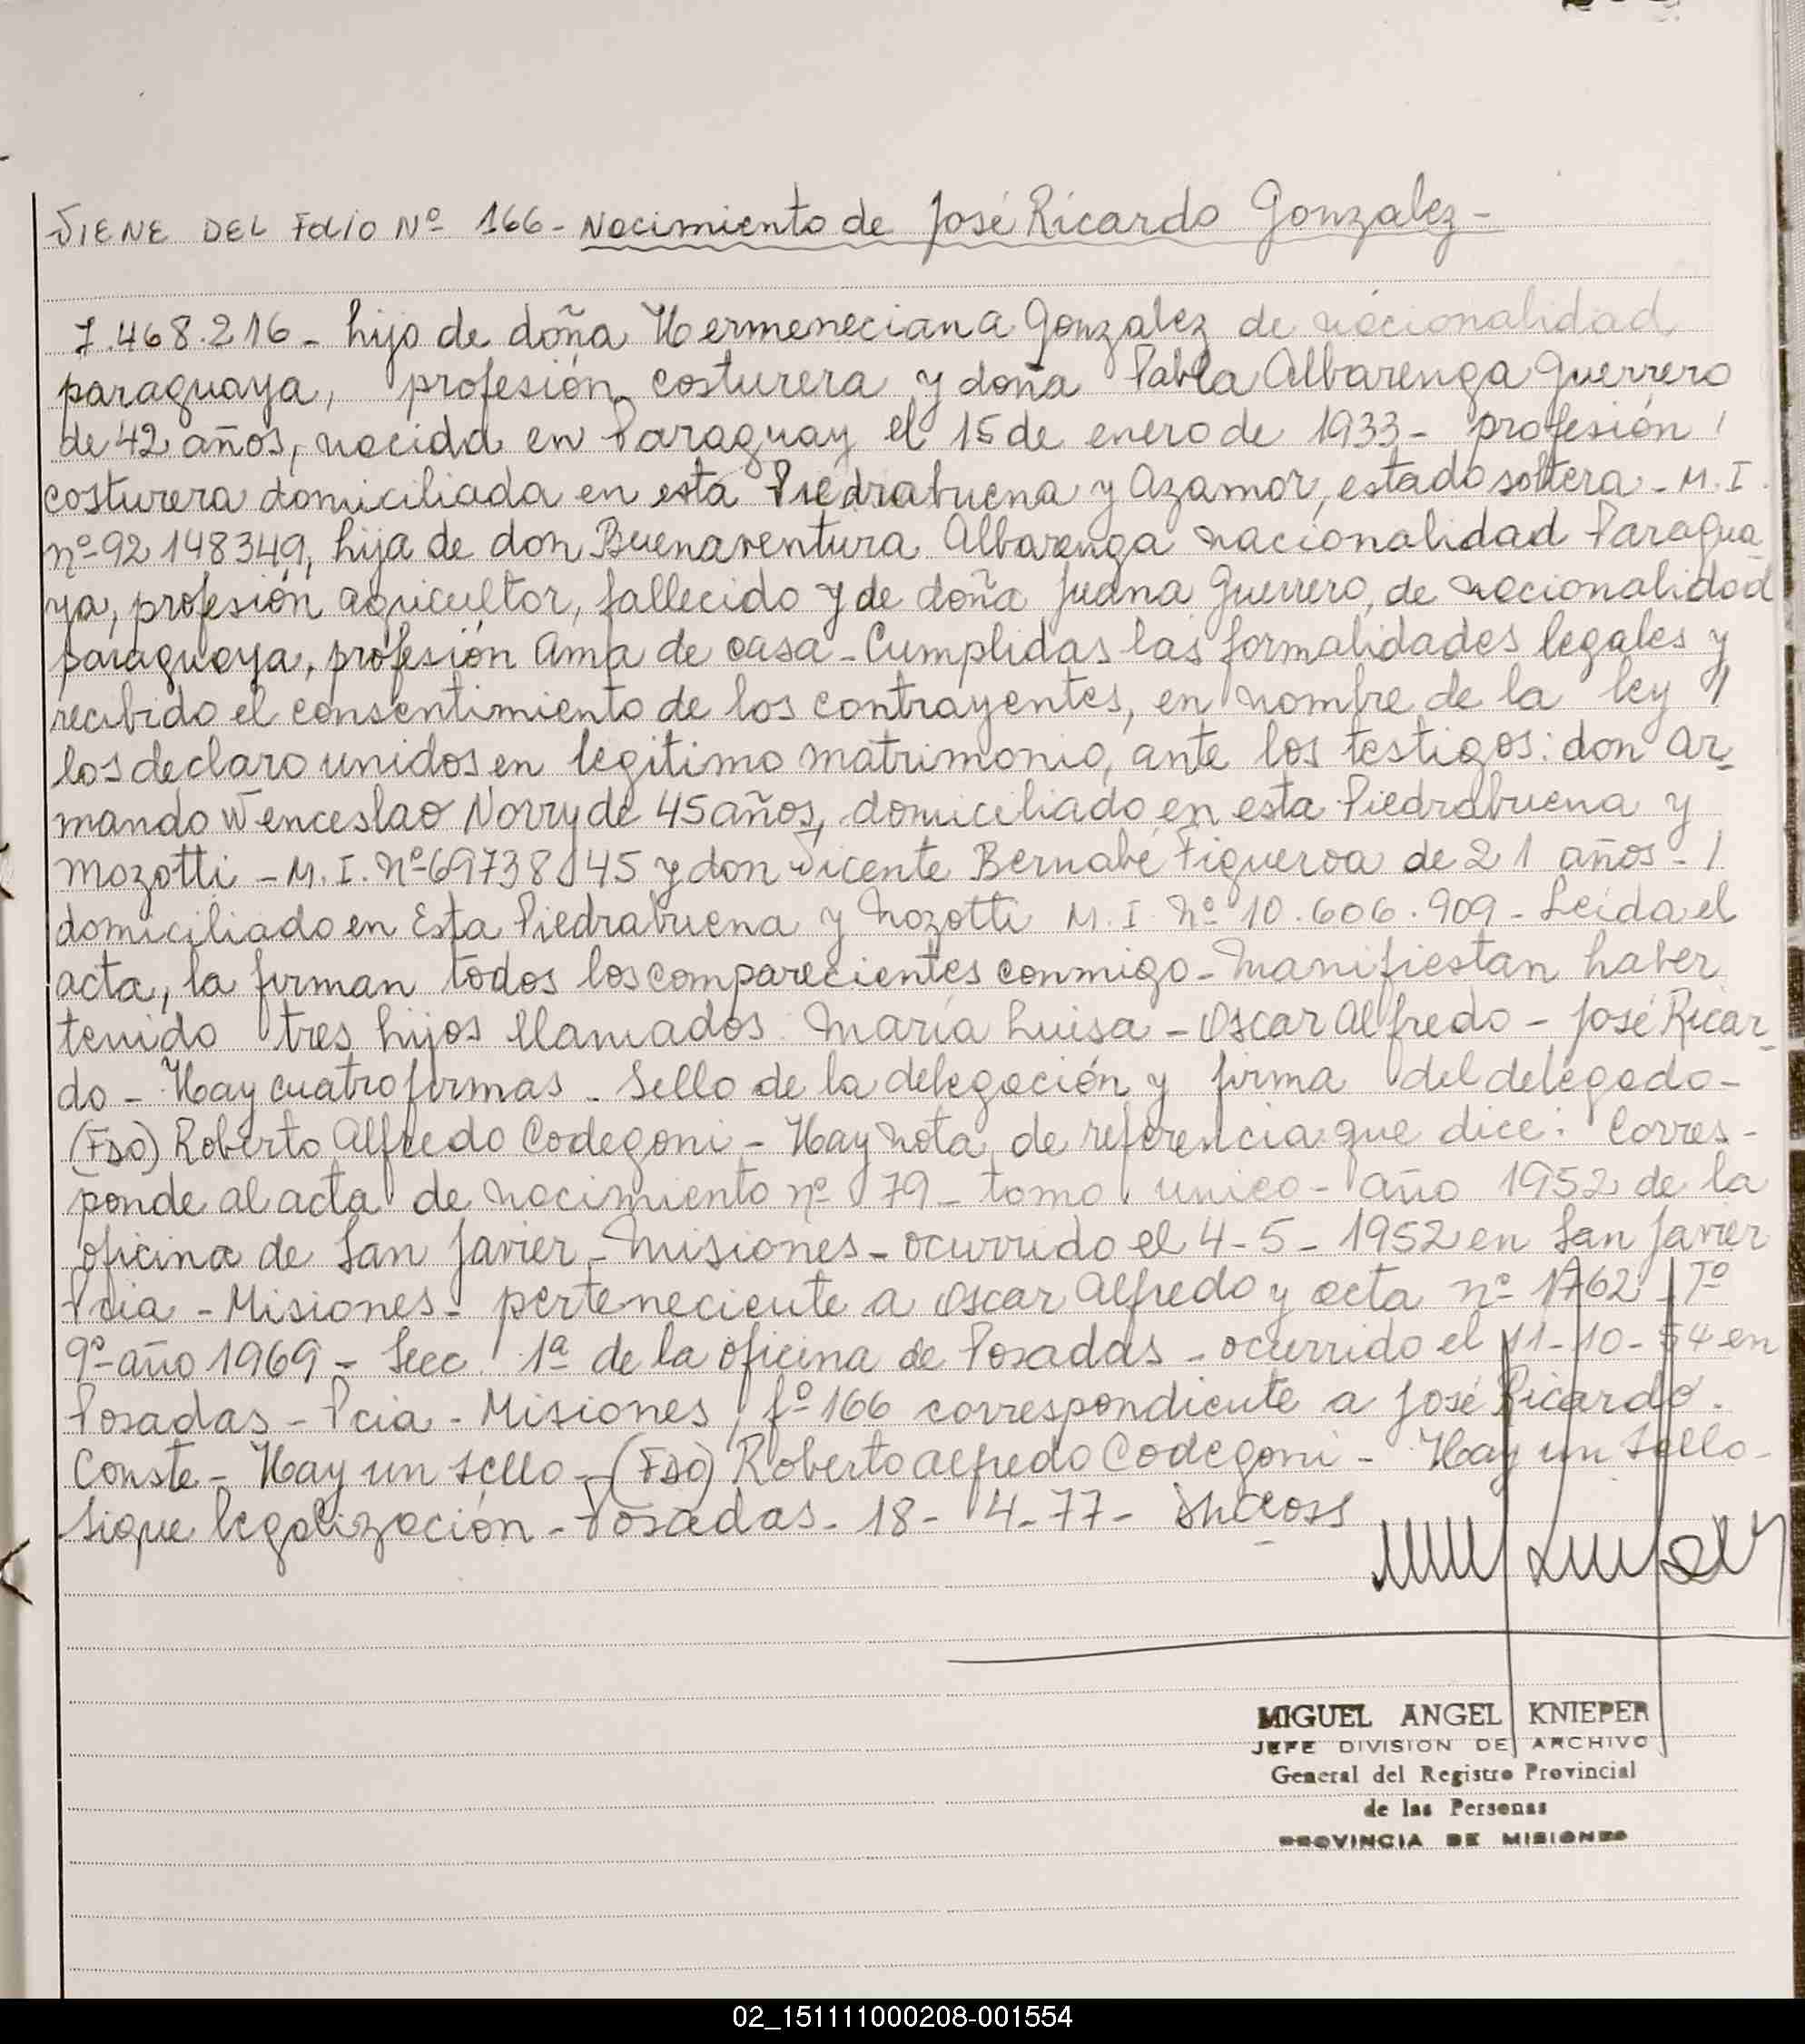 VIENE DEL FOLIO Nº 166 - Nacimiento de José Ricardo Gonzalez -
7.468.216 - hijo de doña Hermeneciana Gonzalez de nacionalidad
paraguaya, profesión costurera y doña Pabla Albarenga Guerrero
de 42 años, nacida en Paraguay el 15 de enero de 1933 - profesión /
costurera domiciliada en esta Piedrabuena y Azamor, estado soltera - M. I.
nº 92 148349, hija de don Buenaventura Albarenga nacionalidad Paragua
ya, profesión agricultor, fallecido y de doña Juana Guerrero, de nacionalidad
paraguaya, profesión Ama de casa - Cumplidas las formalidades legales y
recibido el consentimiento de los contrayentes, en nombre de la ley //
los declaro unidos en legitimo matrimonio, ante los testigos: don Ar-
mando Wenceslao Norry de 45 años, domiciliado en esta Piedrabuena y
Mozotti - M. I. Nº 6973845 y don Vicente Bernabé Figueroa de 21 años - /
domiciliado en Esta Piedrabuena y Mozotti M. I. Nº 10.606.909 - Leida el
acta, la firman todos los comparecientes conmigo - Manifiestan haber
tenido tres hijos llamados: María Luisa - Oscar Alfredo - José Ricar-
do - Hay cuatro firmas - Sello de la delegación y firma del delegado -
(Fdo) Roberto Alfredo Codegoni - Hay Nota de referencia que dice: Corres-
ponde al acta de nacimiento nº 79 - tomo unico - año 1952 de la
oficina de San Javier - Misiones - ocurrido el 4 - 5 - 1952 en San Javier
Pcia - Misiones - perteneciente a Oscar Alfredo y acta nº 1762 - Tº
9º - año 1969 - Secc. 1ª de la oficina de Posadas - ocurrido el 11 - 10 - 54 en
Posadas - Pcia - Misiones, fº 166 correspondiente a José Ricardo.
Conste - Hay un sello - (Fdo) Roberto Alfredo Codegoni - Hay un Sello -
Sigue legalización - Posadas - 18 - 4 - 77 -
MIGUEL ANGEL KNIEPER
JEFE DIVISION DE ARCHIVO
General del Registro Provincial
de las Personas
PROVINCIA DE MISIONES
02_151111000208-001554